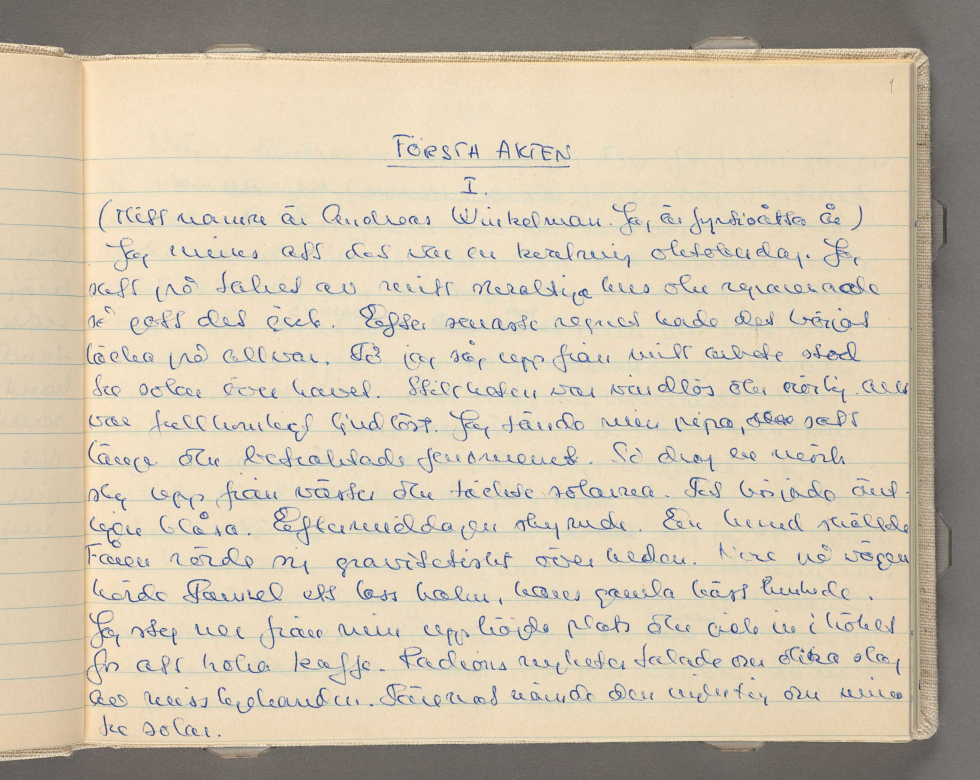 1
FÖRSTA AKTEN
I.
(Mitt namn är Andreas Winkelman. Jag är fyrtioåtta år)
Jag minns att det var en kvalmig oktoberdag. Jag
satt på taket av mitt skraltiga hus och reparerade
så gott det gick. Efter senaste regnet hade det börjat
läcka på allvar. Då jag såg upp från mitt arbete stod
tre solar över havet. Stiltheten var vindlös och mörk, allt
var fullkomligt ljudlöst. Jag tände min pipa, satt
länge och betraktade fenomenet. Så drog en mörk
sky upp från väster och täckte solarna. Det började änt-
ligen blåsa. Eftermiddagen skymde. En hund skällde
Fåren rörde sig gravitetiskt över heden. Nere på vägen
körde Samuel ett lass halm, hans gamla häst linkade.
Jag steg ner från min upphöjda plats och gick in i köket
för att koka kaffe. Radions nyheter talade om olika slag
av misslyckanden. Däremot nämnde den ingenting om mina
tre solar.